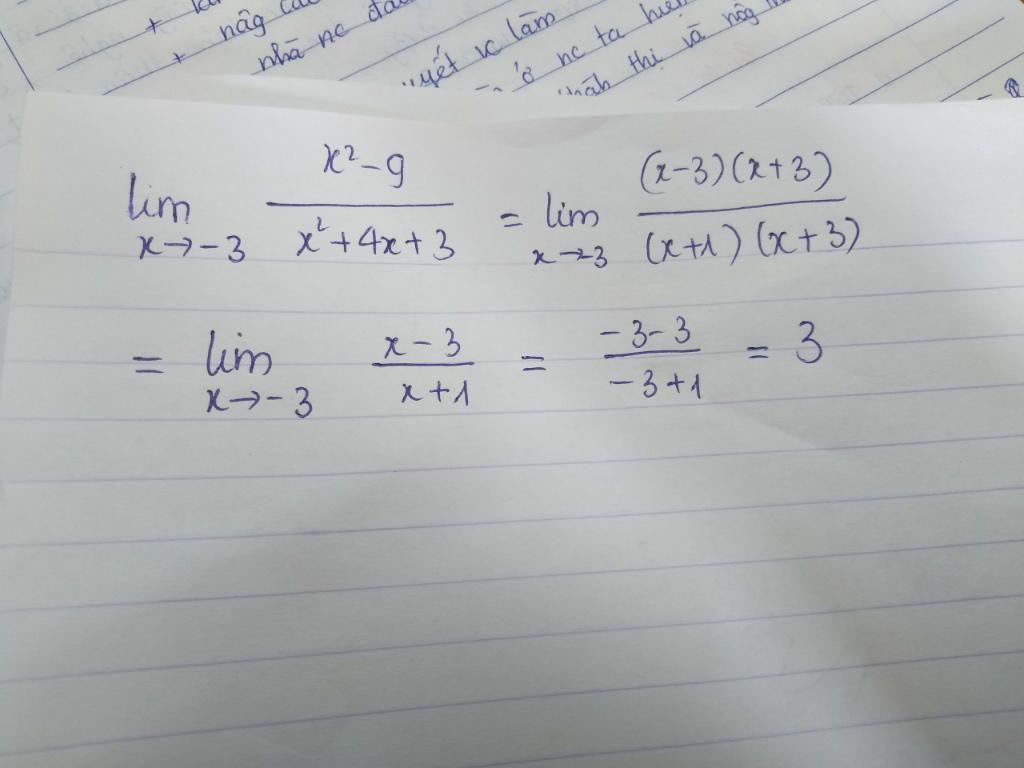 + nâg ca
nhà nc đa
uyết vc làm
ở nc ta hiện
thàh thị và nôg
lim x→-3 (x²-9)/(x²+4x+3) = lim x→-3 ((x-3)(x+3))/((x+1)(x+3))
= lim x→-3 (x-3)/(x+1) = (-3-3)/(-3+1) = 3